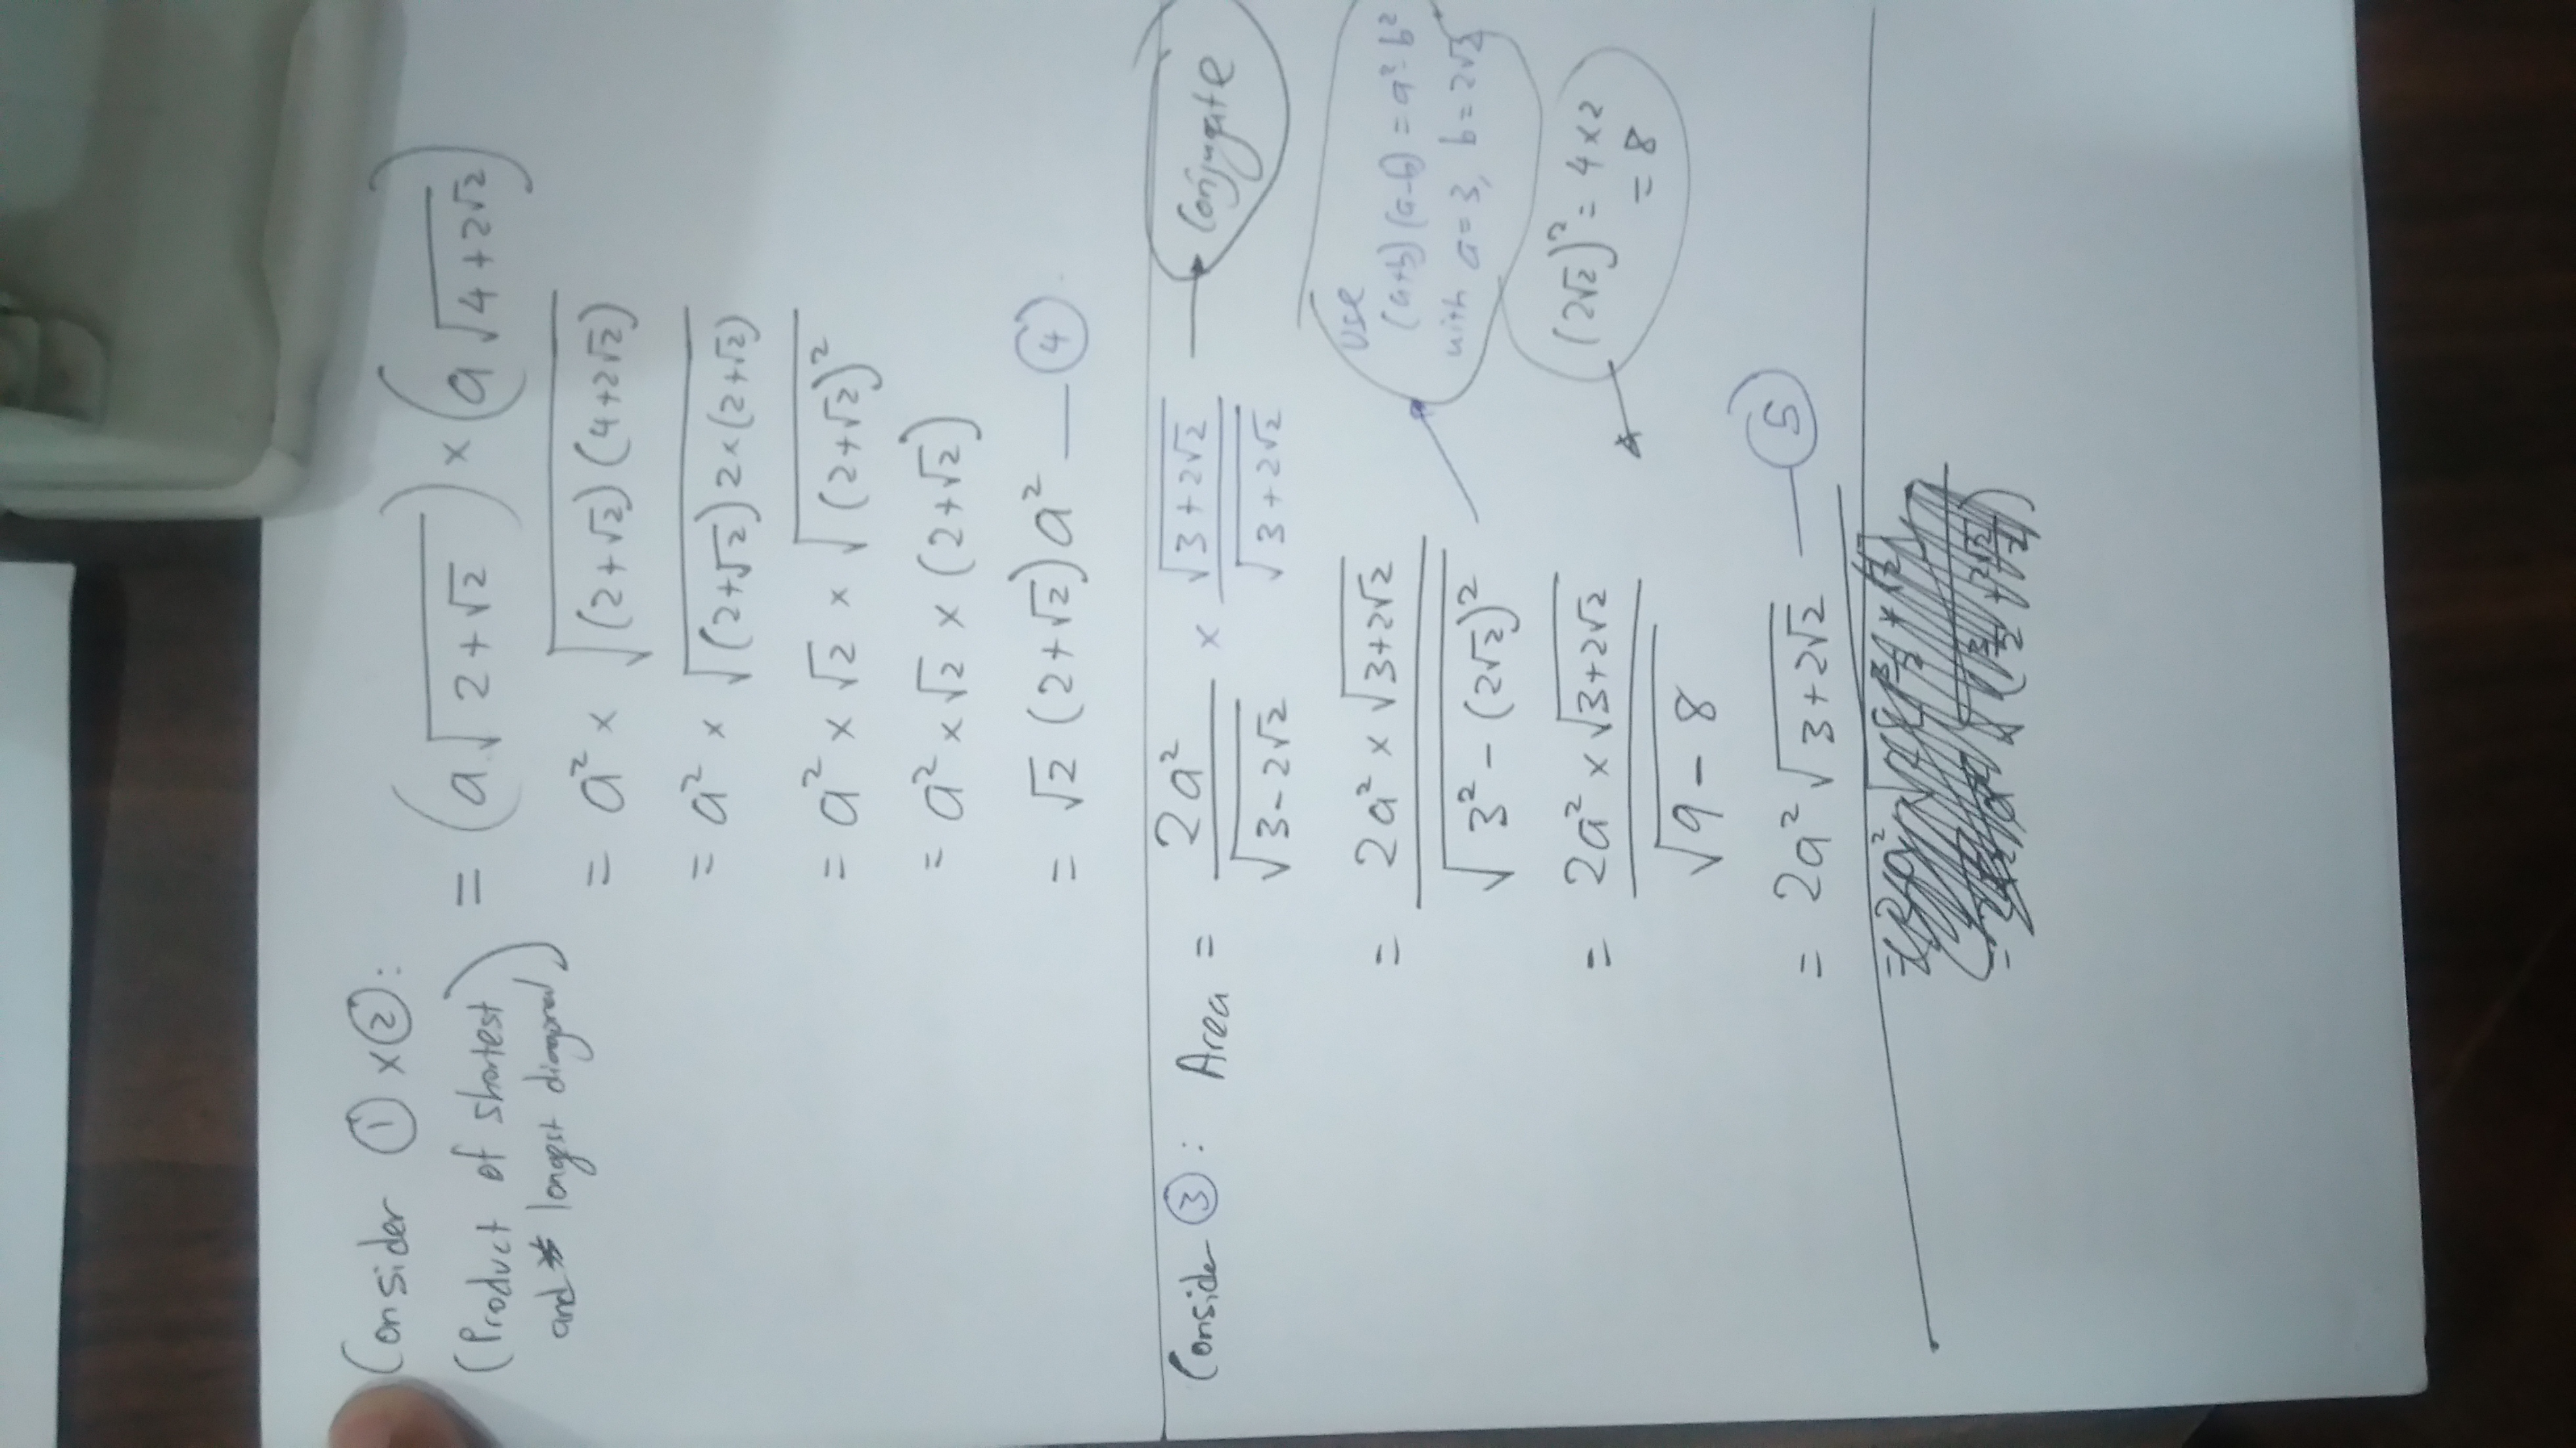 Consider ① × ②:
(Product of shortest and longest diagonal) = (a√(2+√2)) × (a√(4+2√2))
= a² × √((2+√2)(4+2√2))
= a² × √((2+√2)2×(2+√2))
= a² × √2 × √((2+√2)²)
= a² × √2 × (2+√2)
= √2 (2+√2)a² — ④
Consider ③: Area = 2a²/√(3-2√2) × √(3+2√2)/√(3+2√2) → Conjugate
= 2a² × √(3+2√2) / √(3² - (2√2)²)
Use
(a+b)(a-b) = a²-b²
with a=3, b=2√2
= 2a² × √(3+2√2) / √(9-8)
(2√2)² = 4×2
= 8
= 2a²√(3+2√2) — ⑤